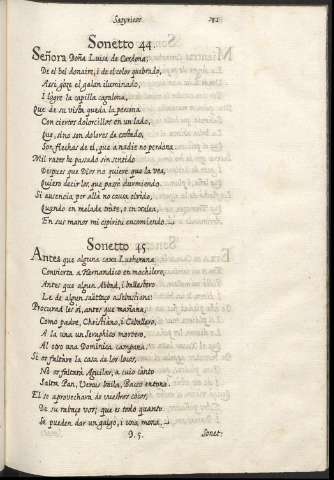 Satyricos 121
Sonetto 44.
Señora Doña Luisa de Cardona,
De el bel donaire, i de el color quebrado,
Assi goze el galan iluminado,
I logre la capilla capalona,
Que de su vista queda la persona
Con ciertos dolorcillos en un lado,
Que, sino son dolores de costado,
Son flechas de el, que a nadie no perdona
Mil ratos he passado sin sentido
Despues que Dios no quiere que la vea,
Quiero decir los que passo durmiendo.
Si ausencia por allà no causa olvido,
Quando en melada trate, o en
En sus manos mi espiritu encomiendo.
Sonetto 45.
Antes que alguna caxa Lutherana
Convierta a Hernandico en mochilero,
Antes que algun Abbad, i ballestero
Le de algun saetaço a Sebastiana:
Procurad les si, antes que mañana,
Como padre, Christiano, i Cavallero,
A la una un Seraphico mortero,
Al otro una Dominica campana.
Si os faltàre la casa de los locos,
No os faltarà Aguilar, a cuio canto
Salta Pan, Venus baila, Bacco entona.
El se aprovecharà de vuestros cocos,
De su rabaço vos; que es todo quanto
Se pueden dar un galgo, i una mona.
Sonet: